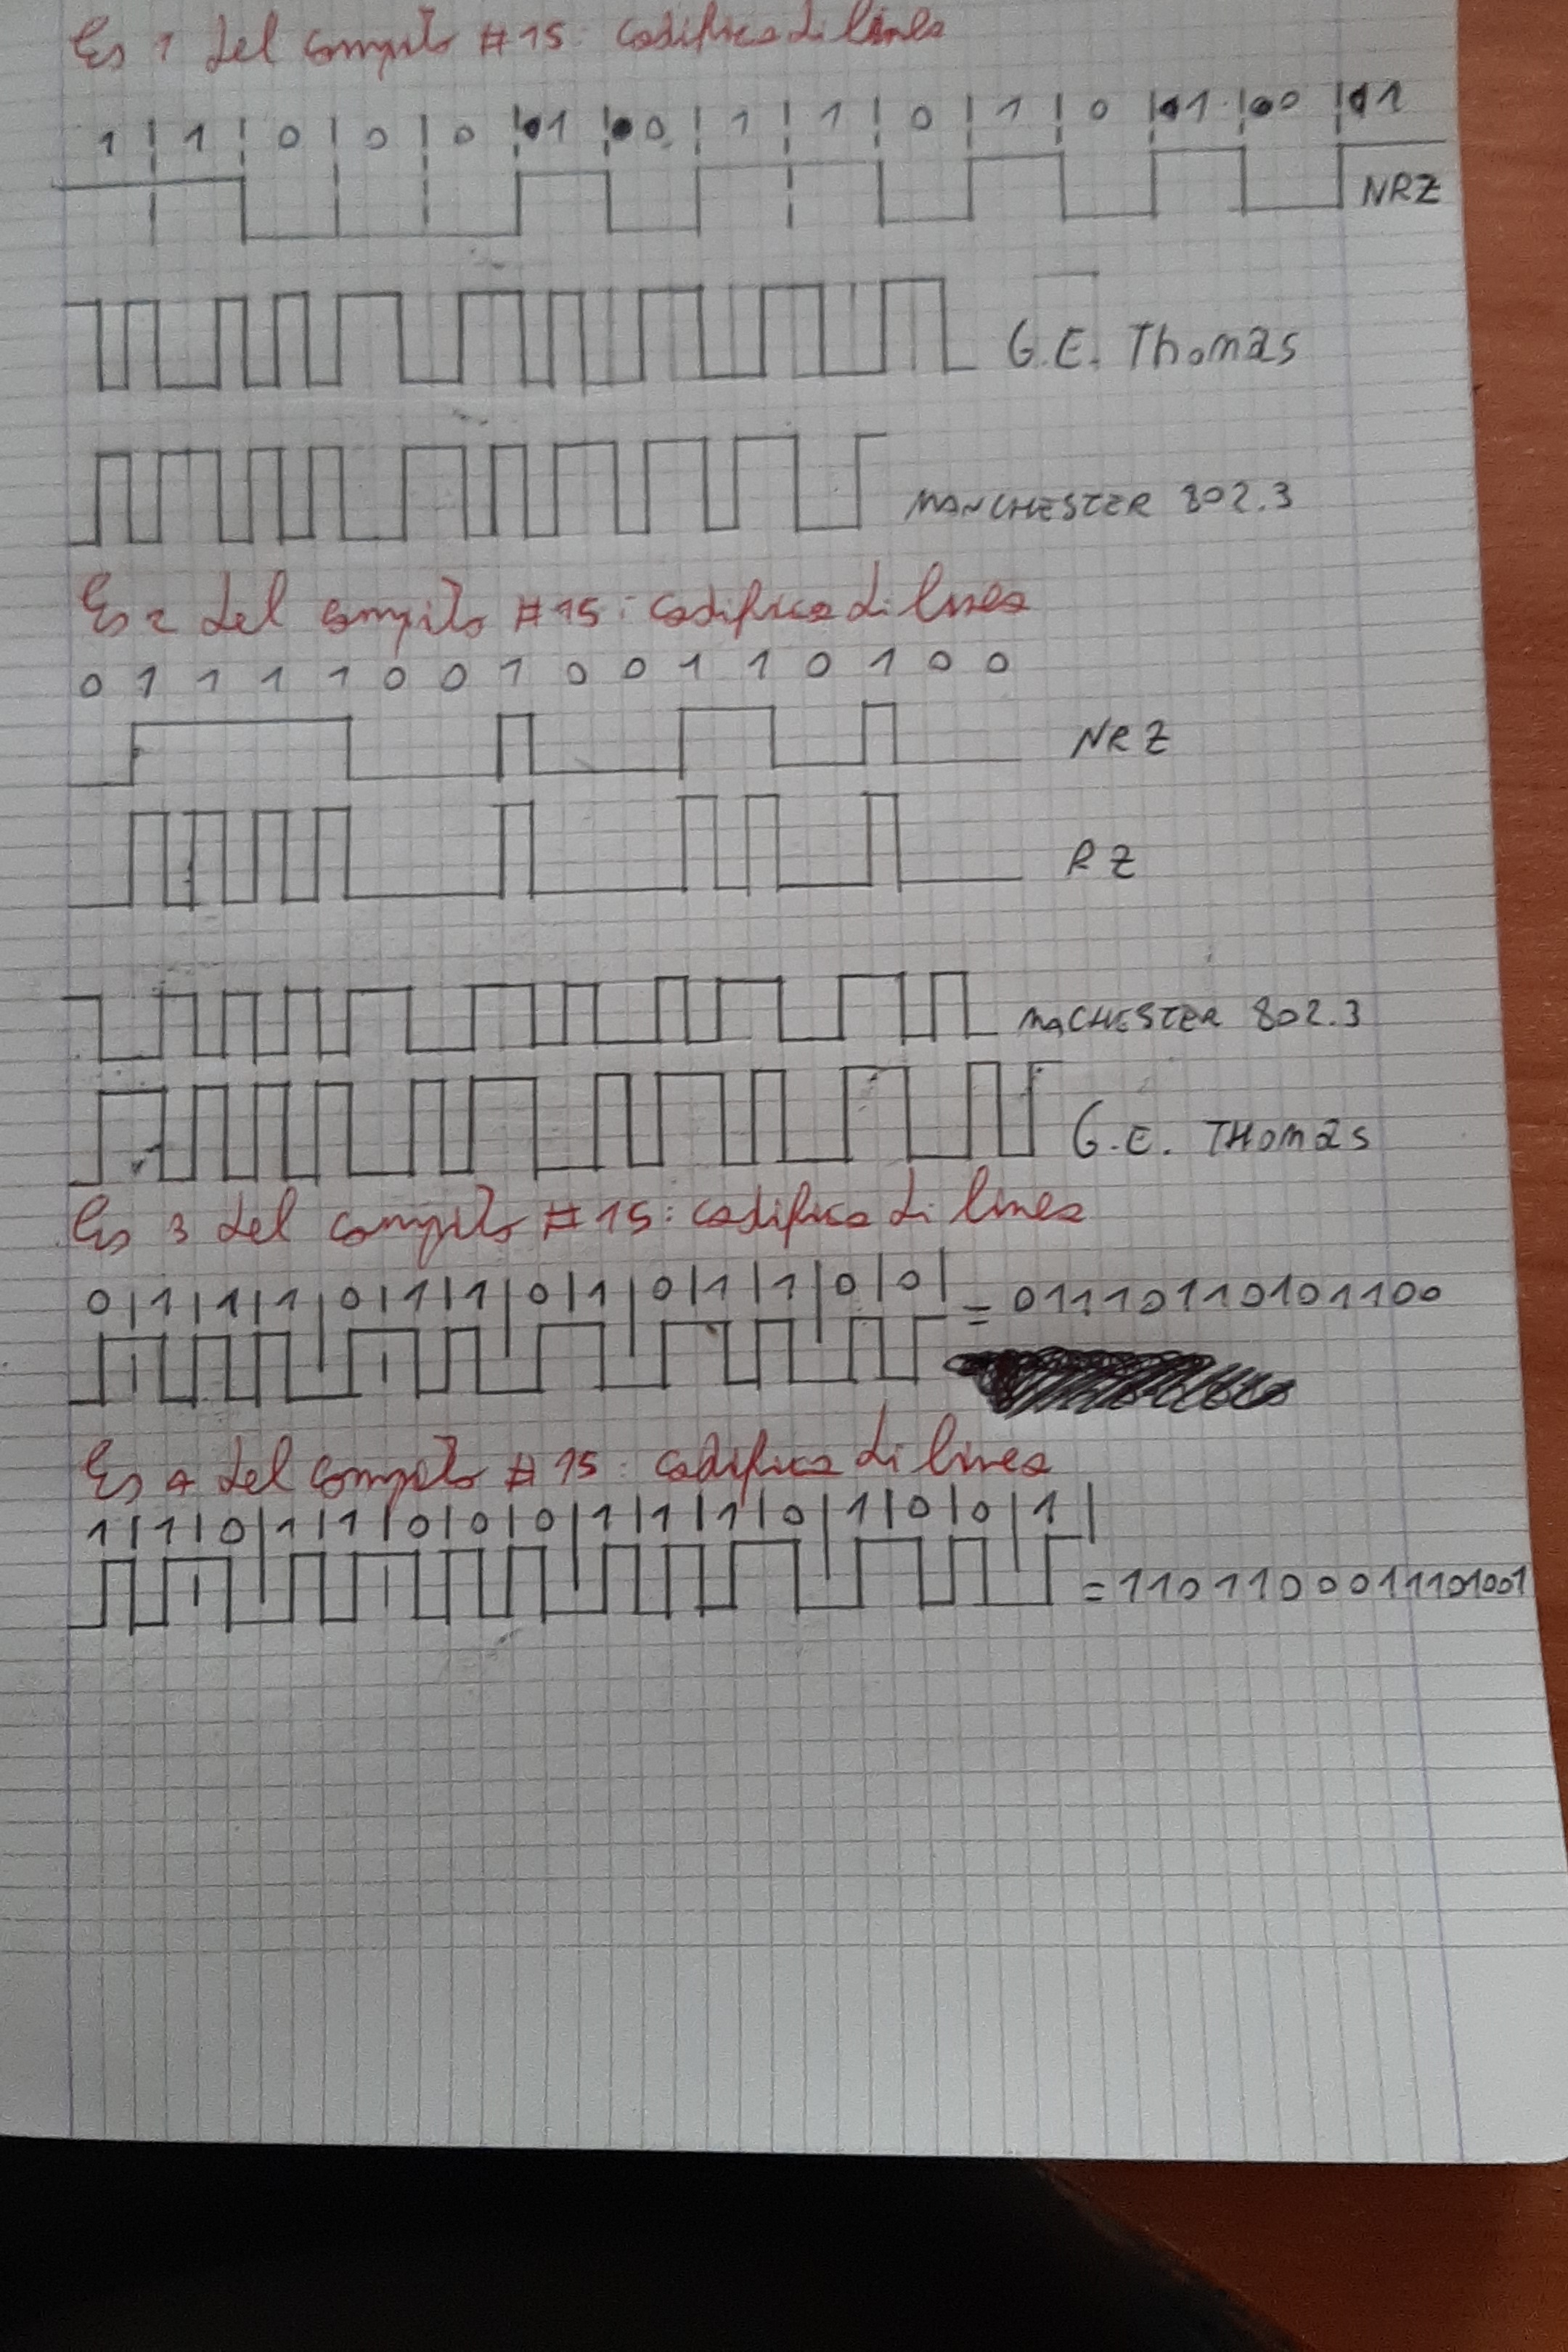 Es 1 del compito #15: codifica di linea
1 1 0 0 0 1 0 1 1 0 1 0 1 0 1
NRZ
G.E. Thomas
MANCHESTER 802.3
Es 2 del compito #15: codifica di linea
0 1 1 1 1 0 0 1 0 0 1 1 0 1 0 0
NRZ
RZ
MACHESTER 802.3
G.E. THOMAS
Es 3 del compito #15: codifica di linea
0|1|1|1|0|1|1|0|1|0|1|1|0|0|
= 01110110101100
Es 4 del compito #15: codifica di linea
1|1|0|1|1|0|0|0|1|1|1|0|1|0|0|1|
=1101100011101001